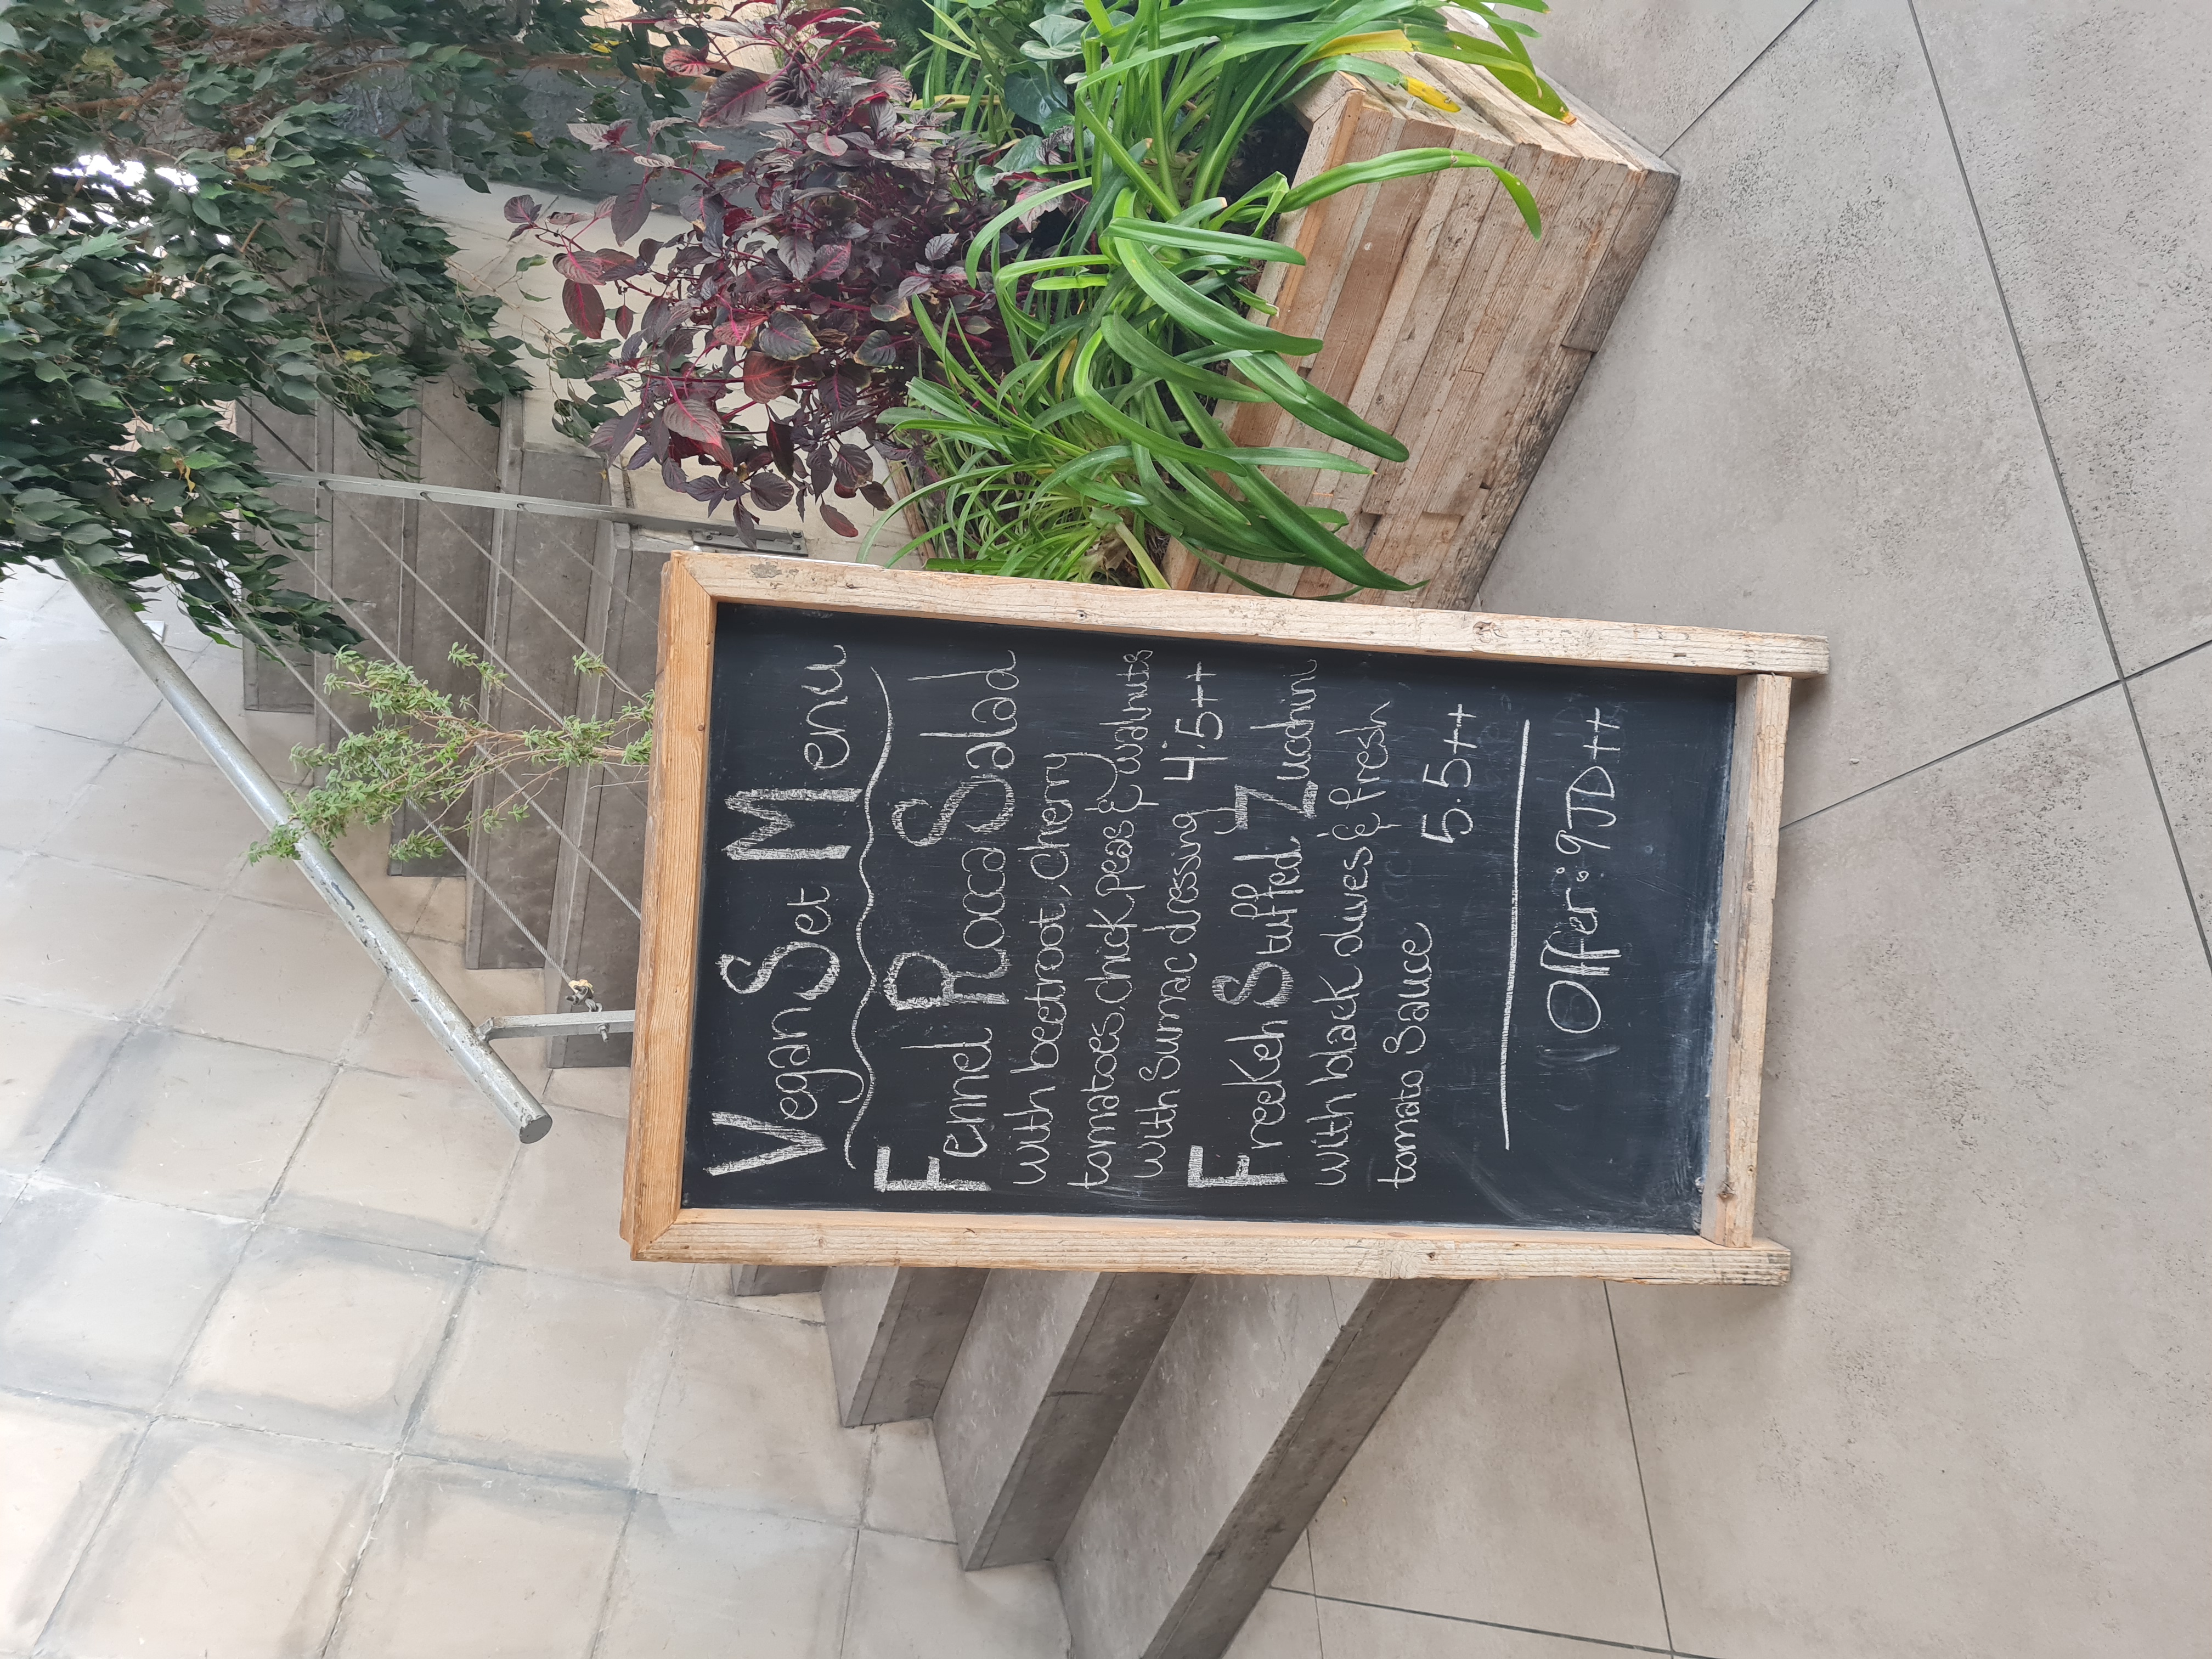 Vegan Set Menu
Fennel Rocca Salad
with beetroot, cherry
tomatoes, chick peas & walnuts
with Sumac dressing 4.5++
Freekeh Stuffed Zucchini
with black olives & fresh
tomato Sauce
5.5++
Offer: 9JD++